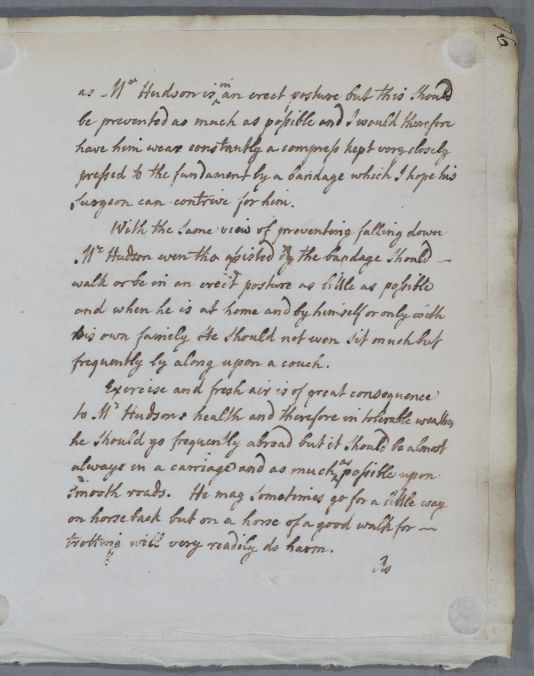 76
as Mr Hudson is in an erect posture but this should
be prevented as much as possible and I would therefore
have him wear constantly a compress kept very closely
pressed to the fundament by a bandage which I hope his
surgeon can contrive for him.
With the same view of preventing falling down
Mr Hudson even tho assisted by the bandage should —
walk or be in an erect posture as little as possible
and when he is at home and by himself or only with
his own family he should not even sit much but
frequently ly along upon a couch.
Exercise and fresh air is of great consequence
to Mr Hudsons health and therefore in tolerable weather
he should go frequently abroad but it should be almost
always in a carriage and as much as possible upon
smooth roads. He may sometimes go for a little way
on horseback but on a horse of a good walk for —
trotting will very readily do harm.